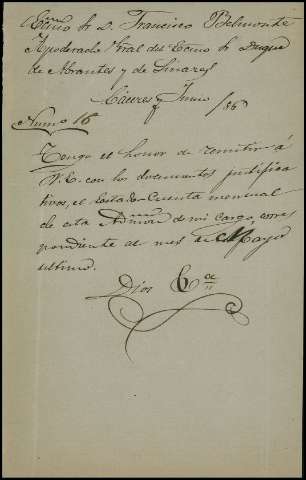 Excmo Sr D. Francisco Belmonte
Apoderado Gral del Excmo Sr Duque
de Abrantes y de Linares
Cáceres y Junio /86
Numo 16
Tengo el honor de remitir á
V.E. con los documentos justifica
tivos, el Estado-Cuenta mensual
de esta Admon de mi cargo, corres
pondiente al mes de Mayo
ultimo.
Dios &a